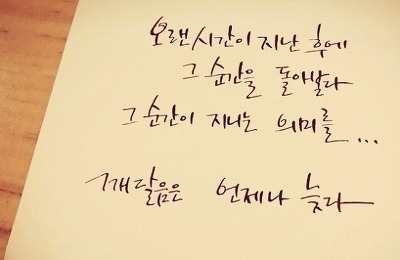 오랜 시간이 지난 후에
그 순간을 돌아보다
그 순간이 지니는 의미를 ...
깨달음은 언제나 늦다